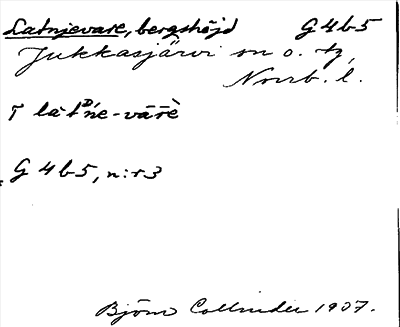 Latnjevare, bergshöjd G4b5
Jukkasjärvi sn o. tg,
Norrb. l.
T làtᴰńe-vārè
G 4b5, n:r 3
Björn Collinder 1907.